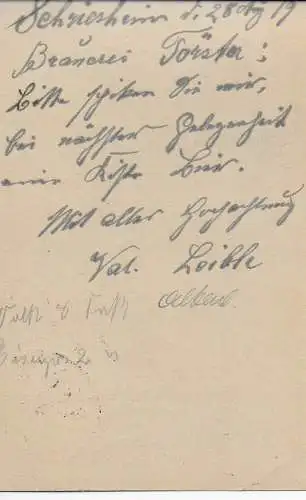 Schriesheim d. 28 Aug 19
Brauerei Förster:
Bitte schiken Sie mir,
bei nächster Gelegenheit
eine Kiste Bier.
Mit aller Hochachtung
Val. Loible